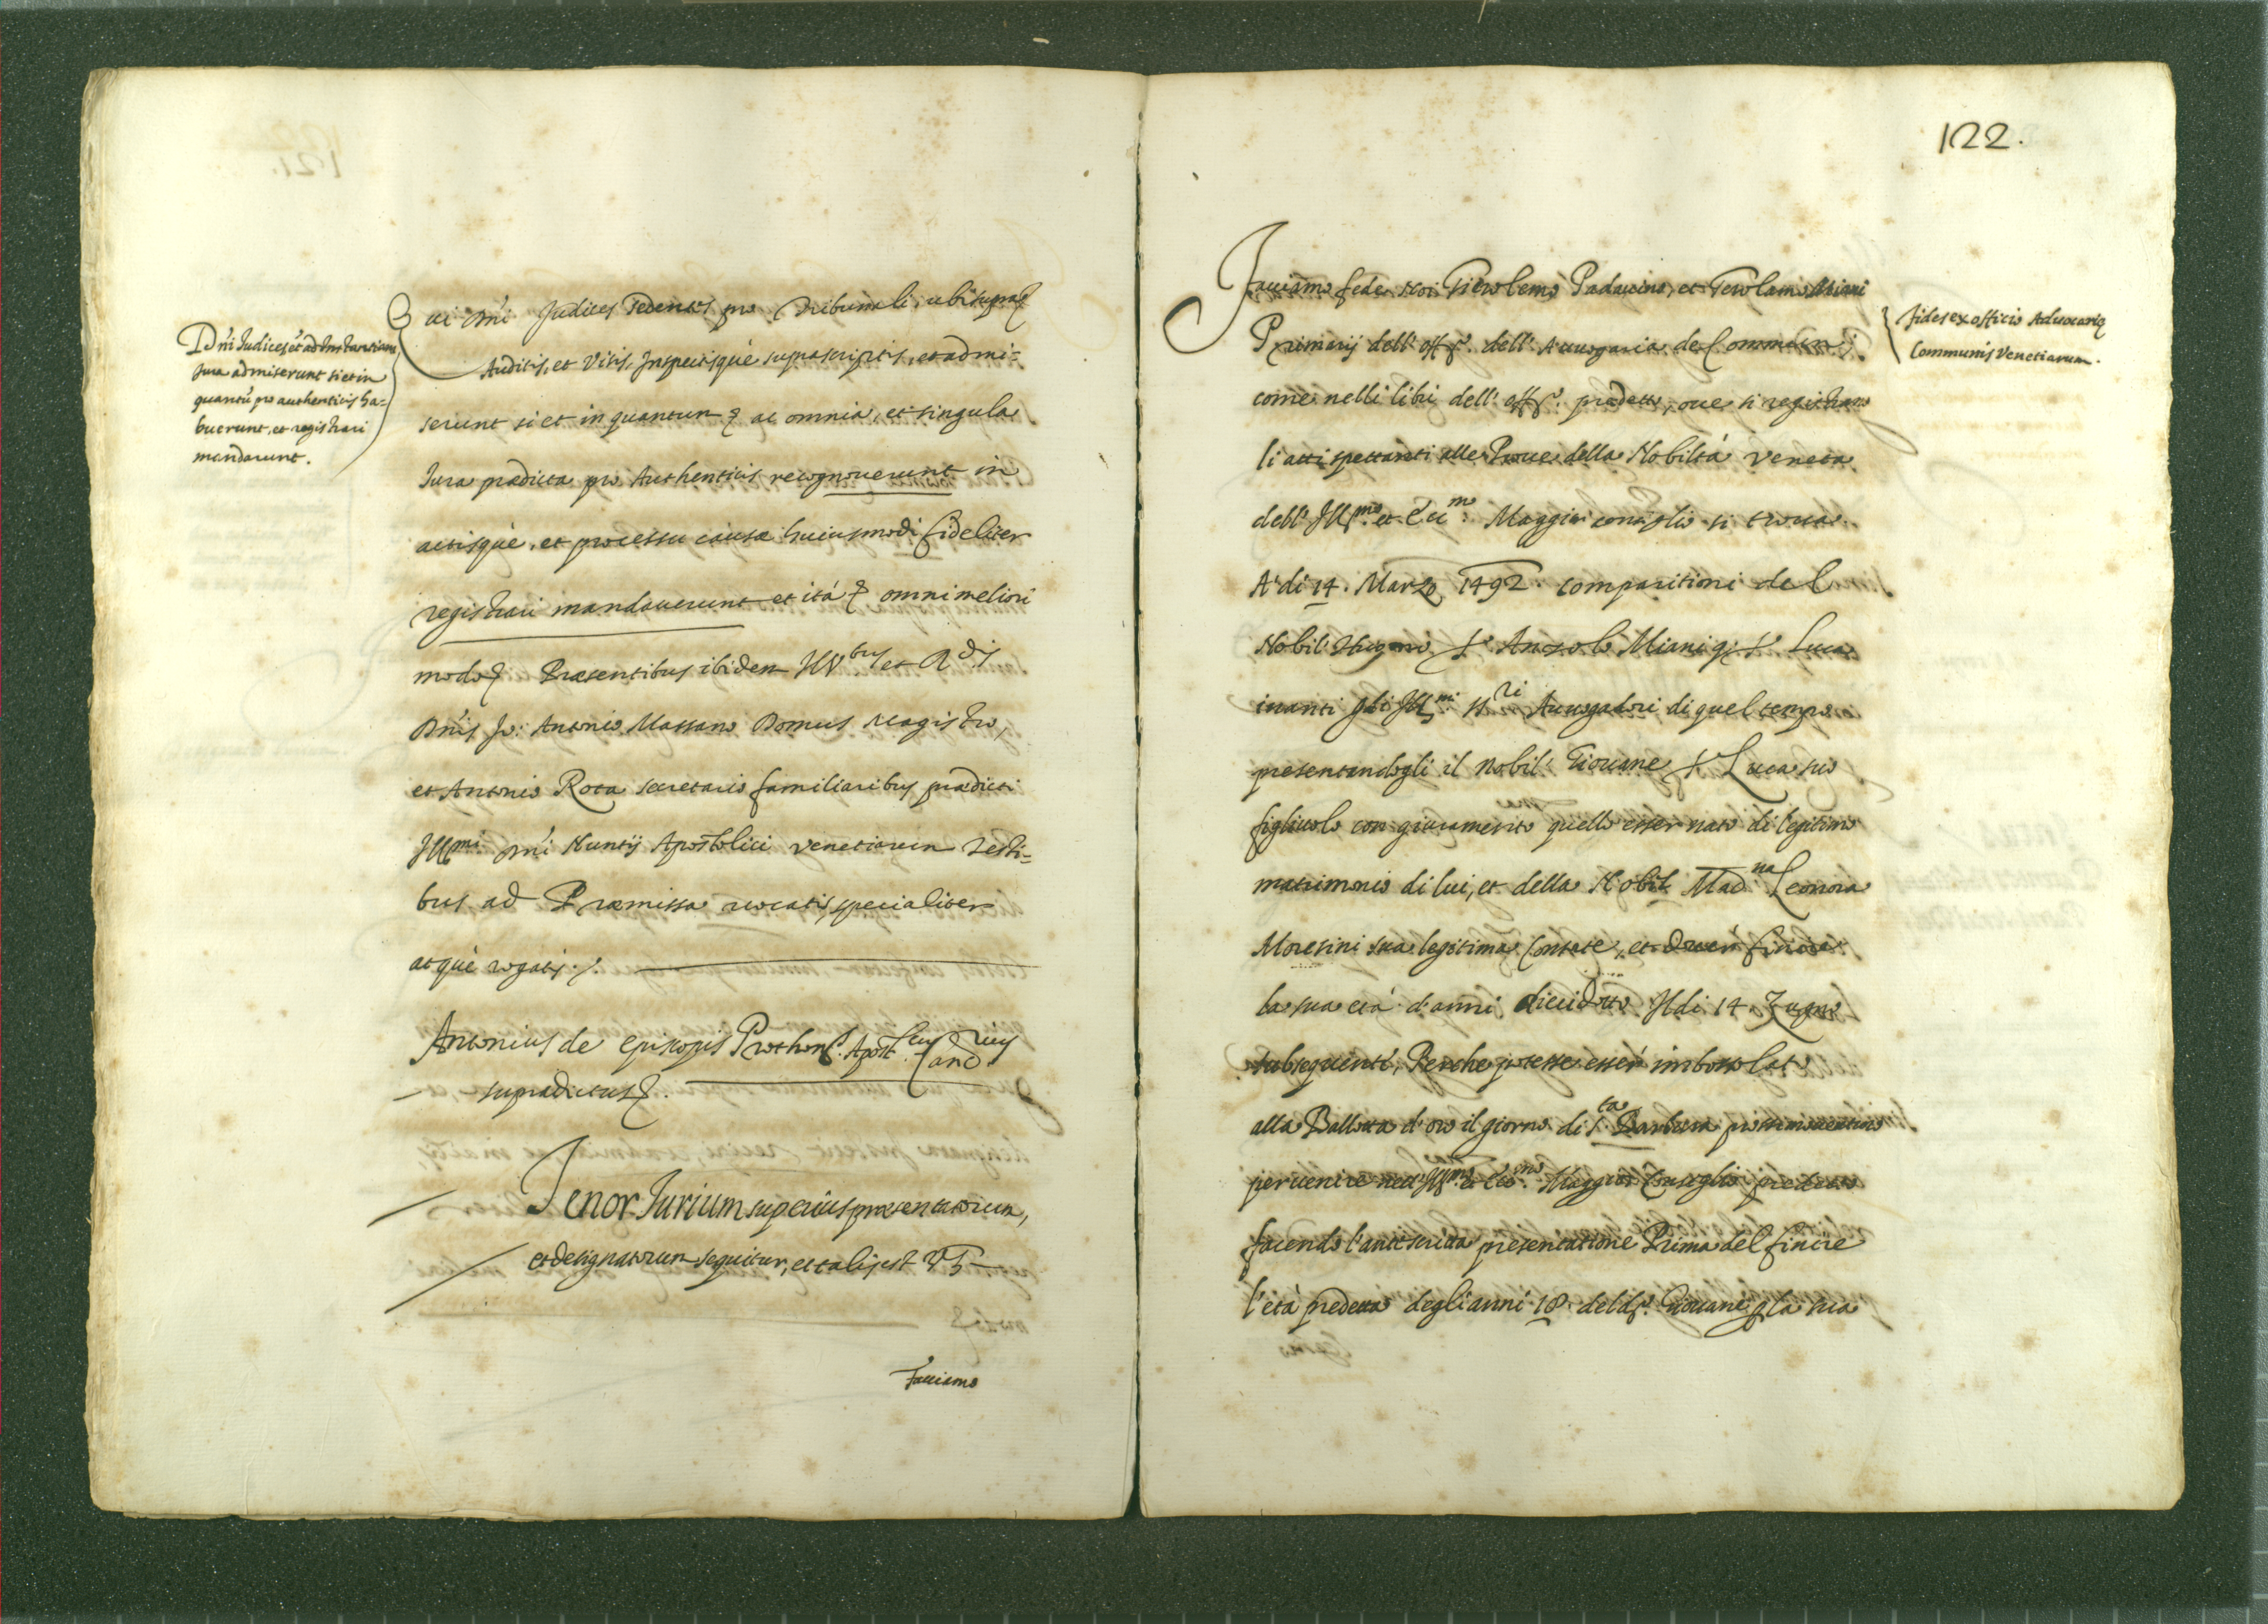 D'ni Judices et ad Instantiam
Jura admiserunt si et in
quantũ pro authenticis ha-
buerunt, et registrari
mandarunt.
Qui Dñi Judices Sedentes pro Tribunali, ubi supra
Auditis, et Visis, Inspectisquè suprascriptis, et admi=
serunt si et in quantum ac omnia, et singula
Jura prædicta pro Authenticis recognoverunt in
actisquè, et processu causæ huiusmodi fideliter
registrari mandaverunt et ità omni meliori
modo Præsentibus ibidem Ill.bus et Rdis
Dñis Jo: Antonio Massano Domus Magistro,
et Antonio Rota secretario familiaribus prædicti
Illmi Dñi Nuntij Apostolici Venetiarum Testi=
bus ad Præmissa vocatis, specialiter
atquè rogatis.
Antonius de Episcopis Prothon.s Apost.cus Canc.rius
supradictus.
Tenor Jurium superius præsentatorum,
et designatorum sequitur, et talis est Vz
Facciamo
122.
Fides ex officio Advocariæ
Communis Venetiarum.
Facciamo fede Noi Gierolemo Padavino, et Gerolamo Miani
Primarij dell'off.o dell'Avvogaria de Commun
come nelli libri dell'off.o predetto, ove si registrano
li atti spettanti alle Prove della Nobiltà Veneta
dell'Ill.mo et Ecc.mo Maggior consiglio si trova
A' di 14. Marzo 1492. comparitioni del
Nobil' Huomo s.r Anzolo Miani q. s.r Luca
inanti gli Ill.mi ss.ri Avvogadori di quel tempo
presentandogli il Nobil' Giovane s.r Luca suo
figliuolo con giuramento quello esser nato di legitimo
matrimonio di lui, et della Nobil Mad.na Leonora
Moresini sua legitima Consorte, et dover finire
la sua età d'anni diecidotto Il di 14. Zugno
subsequente, Perche potesse esser imbossolat
alla Ballotta d'oro il giorno di s.ta Barbara prossimo venturo
pervenire nell'Ill.mo et Ecc.mo Maggior Conseglio predetto
facendo l'antescritta presentatione Prima del finire
l'età predetta degli anni 18. del d.o Giovane la sua